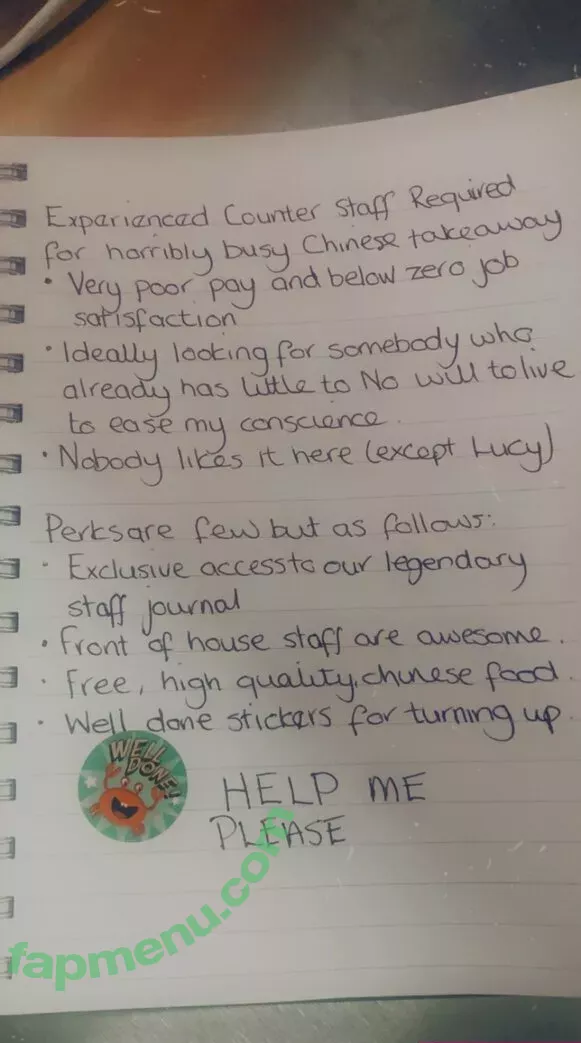 Experienced Counter Staff Required
for horribly busy Chinese takeaway
• Very poor pay and below zero job
satisfaction
• Ideally looking for somebody who
already has little to No will to live
to ease my conscience.
• Nobody likes it here (except Lucy)
Perks are few but as follows:
• Exclusive access to our legendary
staff journal
• Front of house staff are awesome.
• Free, high quality, chinese food.
• Well done stickers for turning up.
WELL
DONE!
HELP ME
PLEASE
fapmenu.com